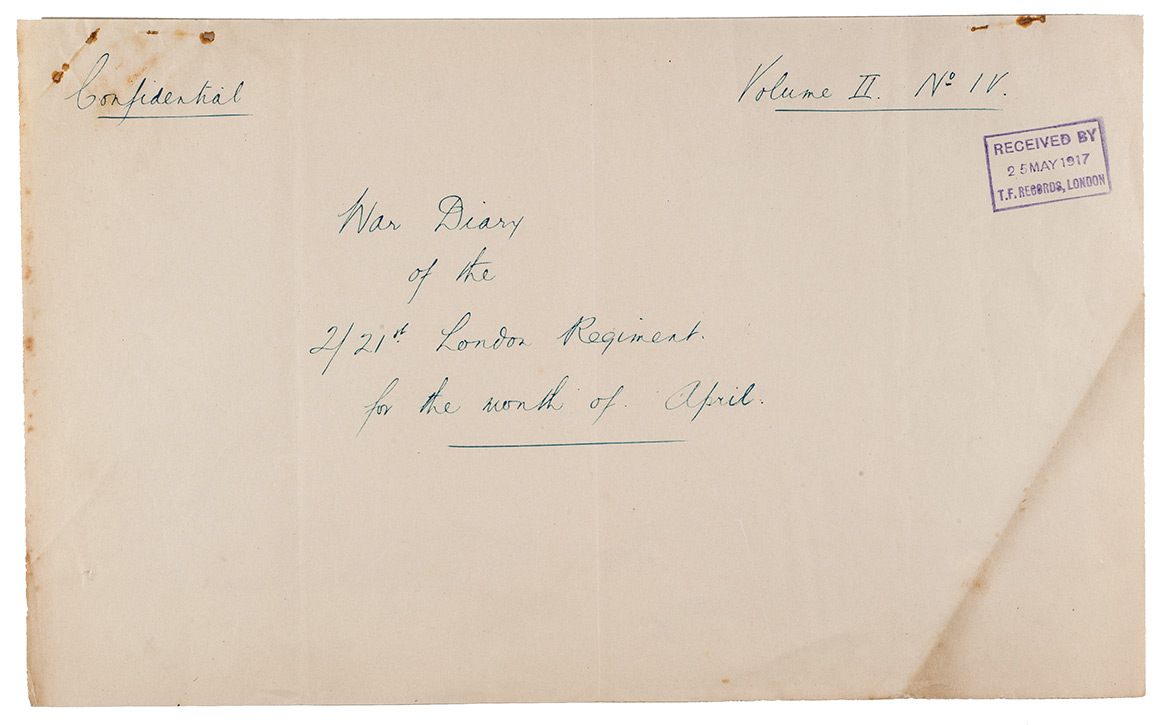 Confidential
Volume II. Nº IV.
RECEIVED BY
25 MAY 1917
T.F. RECORDS, LONDON
War Diary
of the
2/21st London Regiment.
for the month of. April.